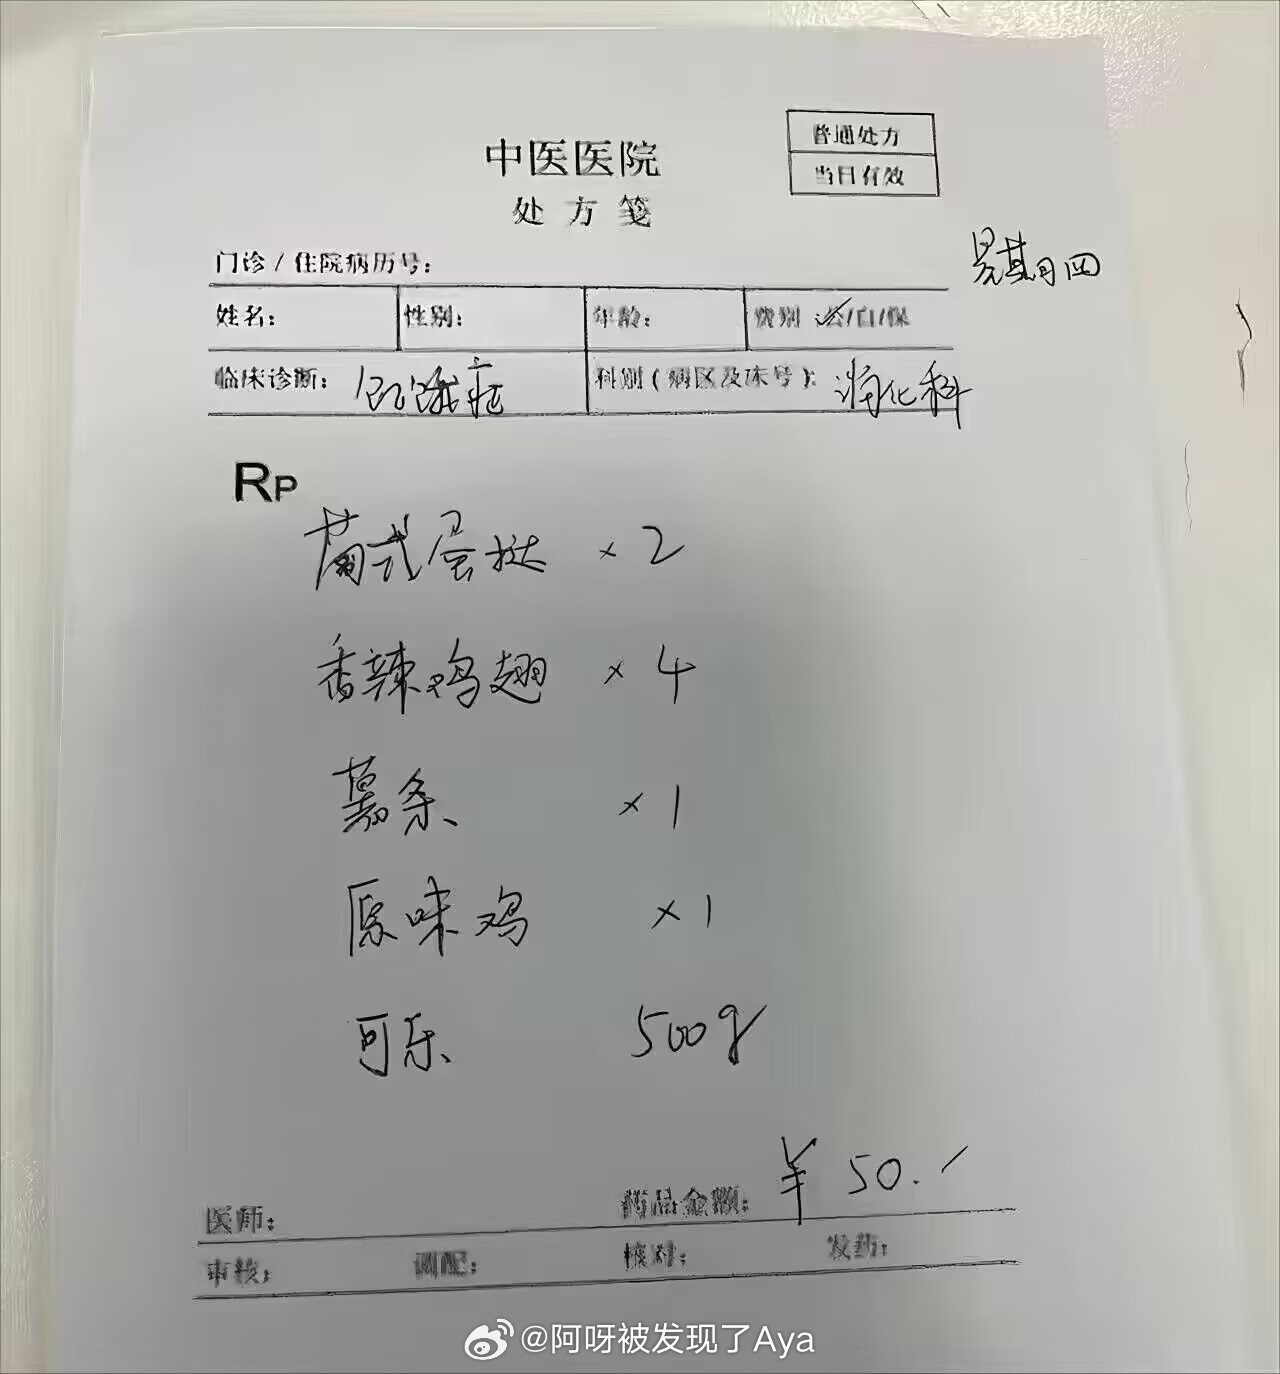 中医医院
处方笺
普通处方
当日有效
星期四
门诊/住院病历号：
姓名：
性别：
年龄：
费别 公/自/保
临床诊断：饥饿症
科别（病区及床号）：消化科
RP
葡式蛋挞 ×2
香辣鸡翅 ×4
薯条 ×1
原味鸡 ×1
可乐 500g
医师：
药品金额：¥50.
审核：
调配：
核对：
发药：
@阿呀被发现了Aya